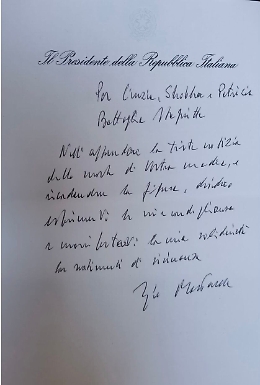 Il Presidente della Repubblica Italiana
Per Cinzia, Shobha e Patrizia
Battaglia Stagnitta
Nell'apprendere la triste notizia
della morte di Vostra madre, e
ricordandone la figura, desidero
esprimervi la mia condoglianza
e manifestarvi la mia solidarietà
con sentimenti di vicinanza
Mattarella